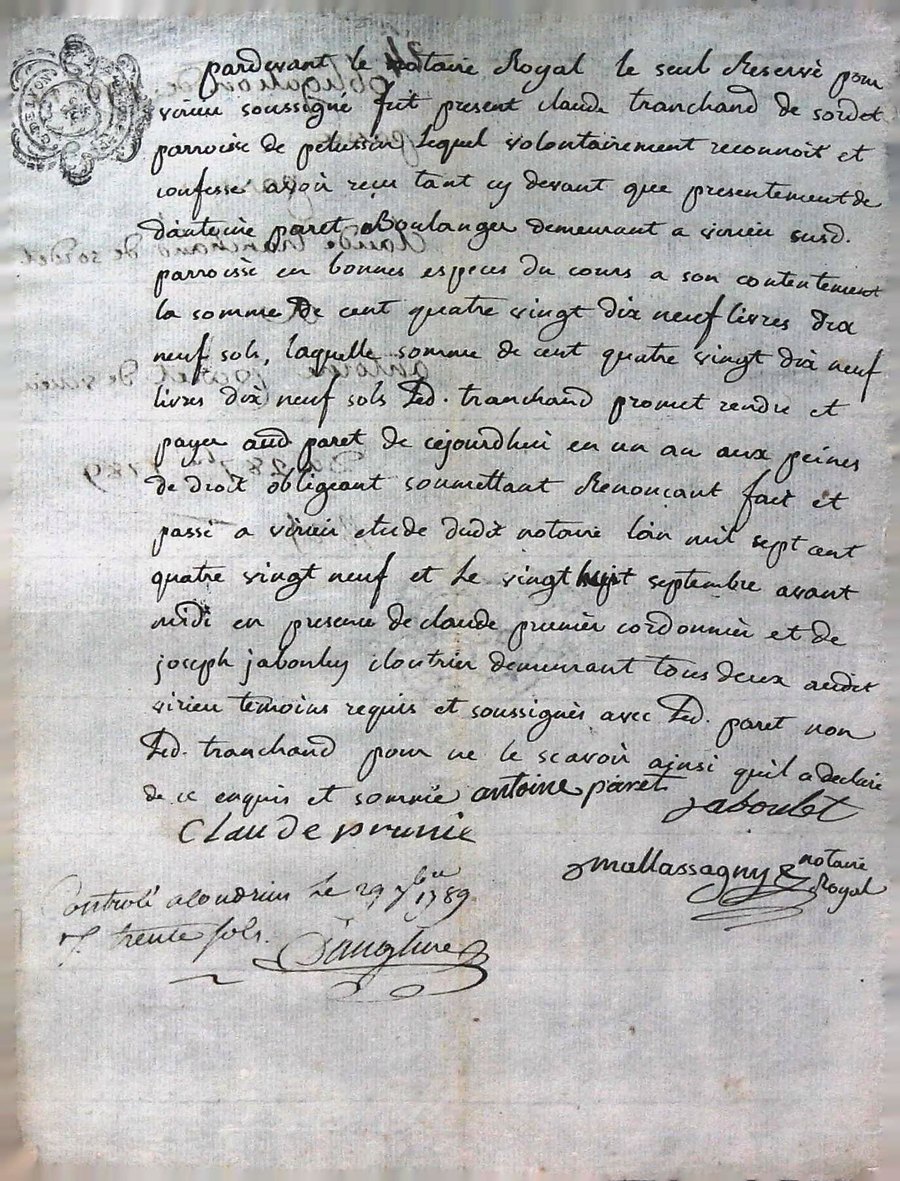 pardevant le notaire Royal le seul Reservé pour
virieu soussigné fut present claude tranchand de sordet
parroisse de pelussin Lequel volontairement reconnoit et
confesse avoir reçu tant cy devant que presentement de
d'antoine paret Boulanger demeurant a virieu susd.
parroisse en bonnes especes du cours a son contentement
la somme de cent quatre vingt dix neuf livres dix
neuf sols, laquelle somme de cent quatre vingt dix neuf
livres dix neuf sols Led. tranchand promet rendre et
payer aud paret de cejourdhui en un an aux peines
de droit obligeant soumettant Renonçant fait et
passé a virieu etude dudit notaire l'an mil sept cent
quatre vingt neuf et Le vingt huit septembre avant
midi en presence de claude prunier cordonnier et de
joseph jaboulay cloutrier demeurant tous deux audit
virieu temoins requis et soussignés avec Led. paret non
Led. tranchand pour ne le scavoir ainsi quil a declaré
de ce enquis et sommé antoine paret
jaboulet
Claude prunie
mallassagny notaire
Royal
Controlé a Condrieu Le 29 7bre 1789
trente sols.